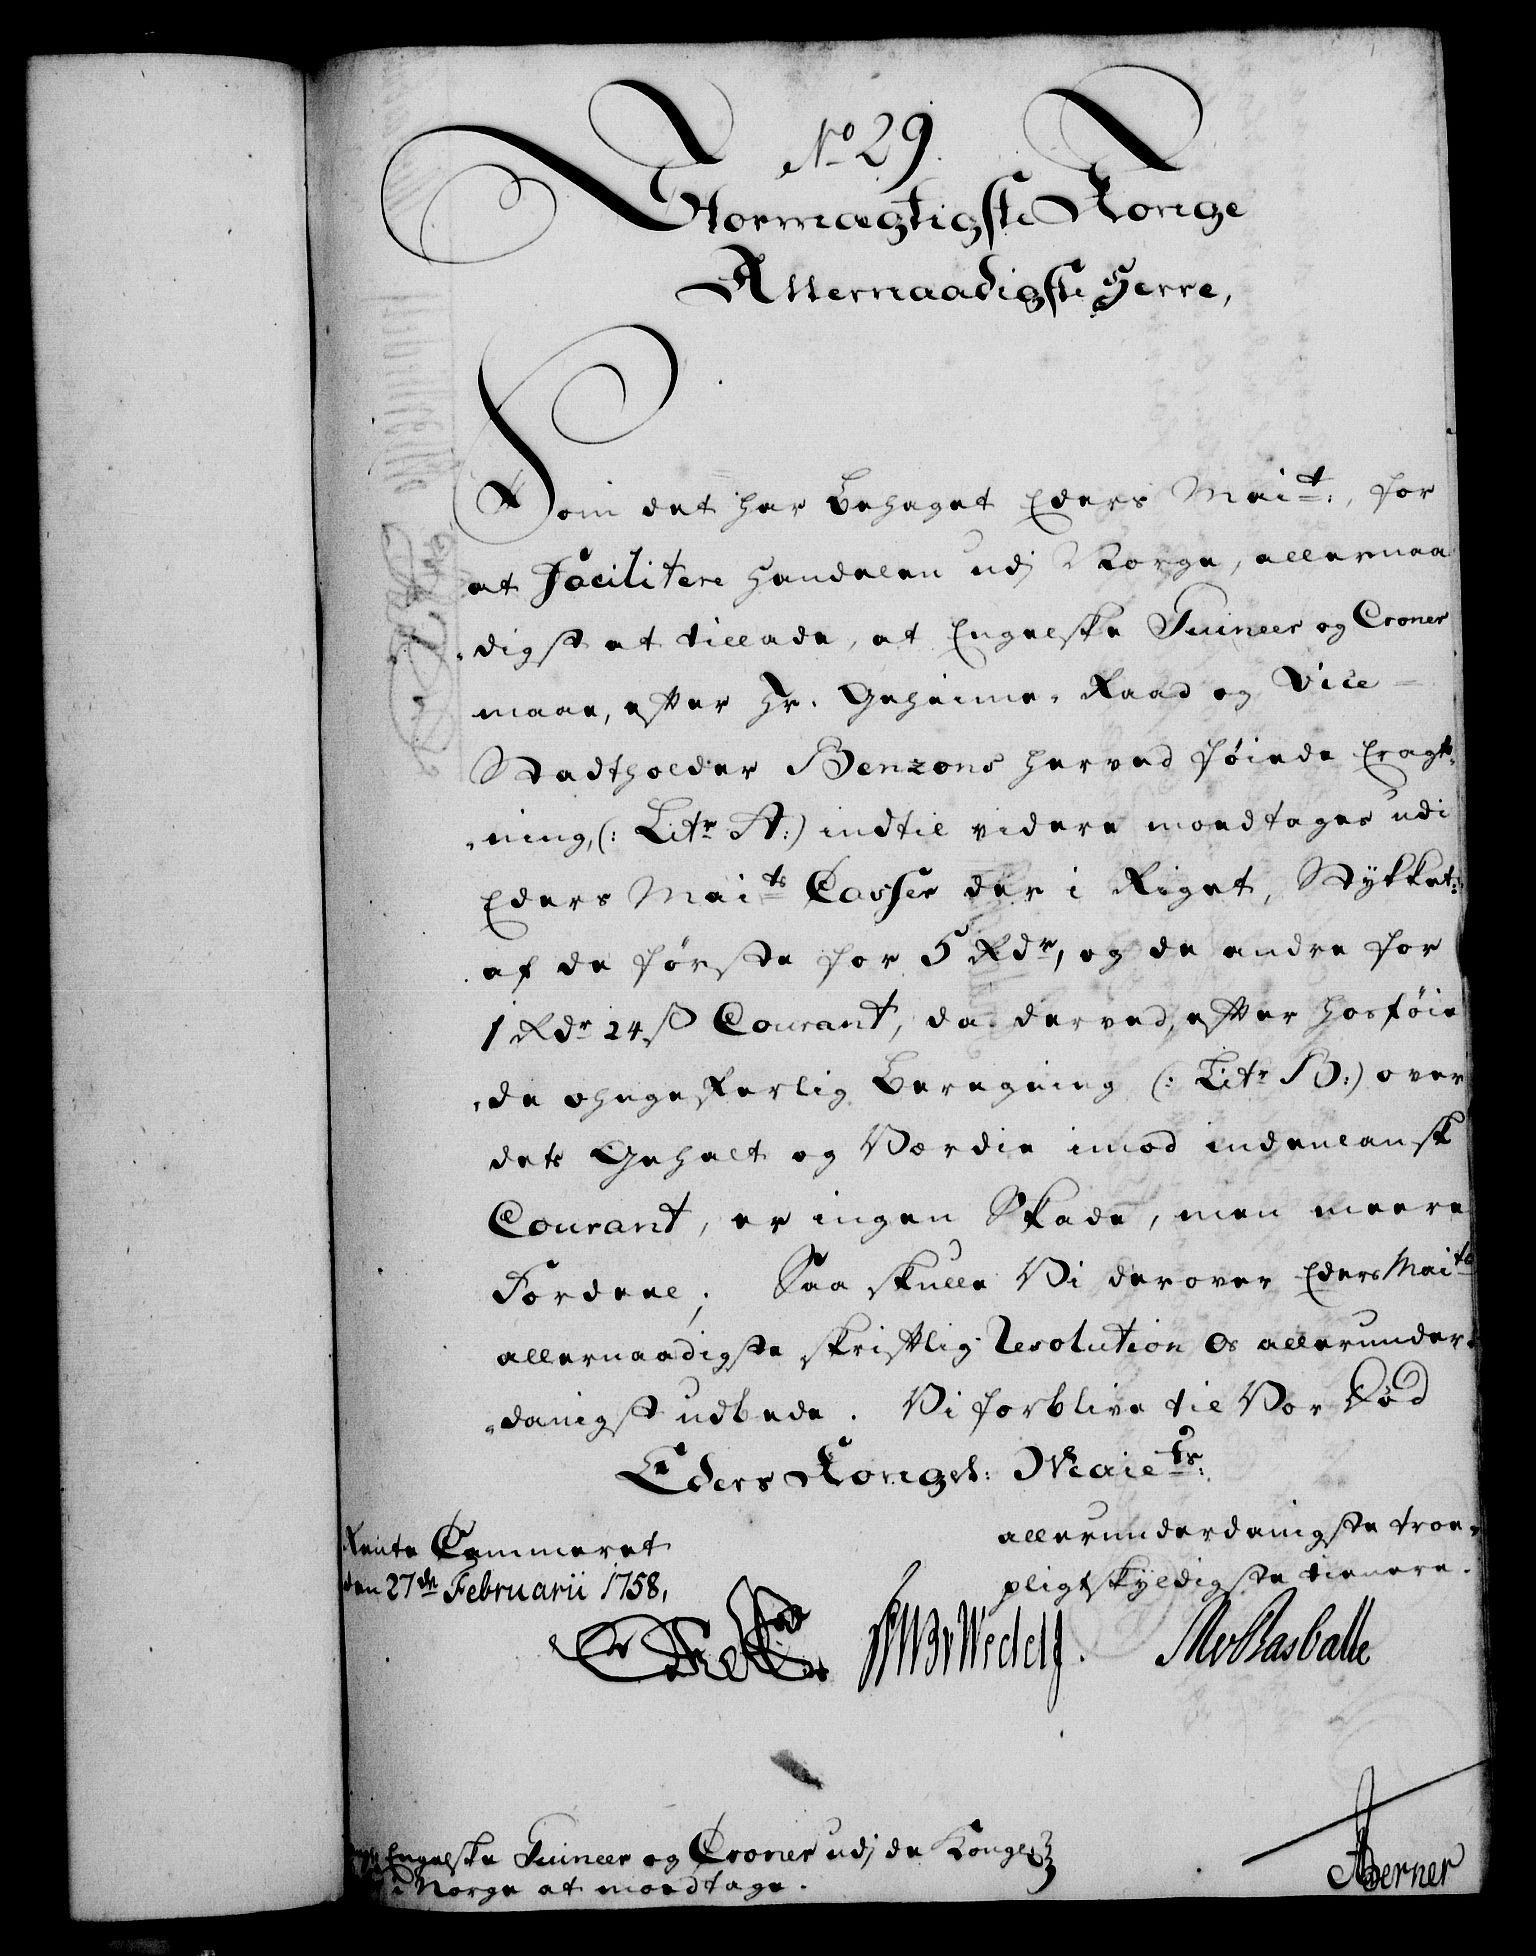 No 29.
Stormægtigste Konge
Allernaadigste Herre,
Som det har behaget Eders Mait:, for
at Facilitere Handelen udj Norge, allernaa
-digst at tillade, at Engelske Guineer og Croner
maae, efter Hr. Geheime-Raad og Vice-
Stadtholder Benzons herved föiede Eragt-
-ning, (: Litr A:) indtil videre modtages udi
Eders Maits Casser der i Riget, Stykket
af de förste for 5 Rdr, og de andre for
1 Rdr 24 ß Courant, da derved, efter hosföie
-de ohngefærlig Beregning (: Litr B:) over
dets Gehalt og Værdie imod indenlansk
Courant, er ingen Skade, men meere
Fordeel; Saa skulle Vi derover Eders Maits
allernaadigste skriftlig Resolution os allerunder-
-danigst udbede. Vi forblive til Vor Död
Eders Kongel: Maiets:
allerunderdanigste troe-
pligtskyldigste tienere.
Rente Cammeret
den 27de Februarii 1758,
Wedell
Rasballe
Engelske Guineer og Croner udj de Kongel
i Norge at modtage.
Berner